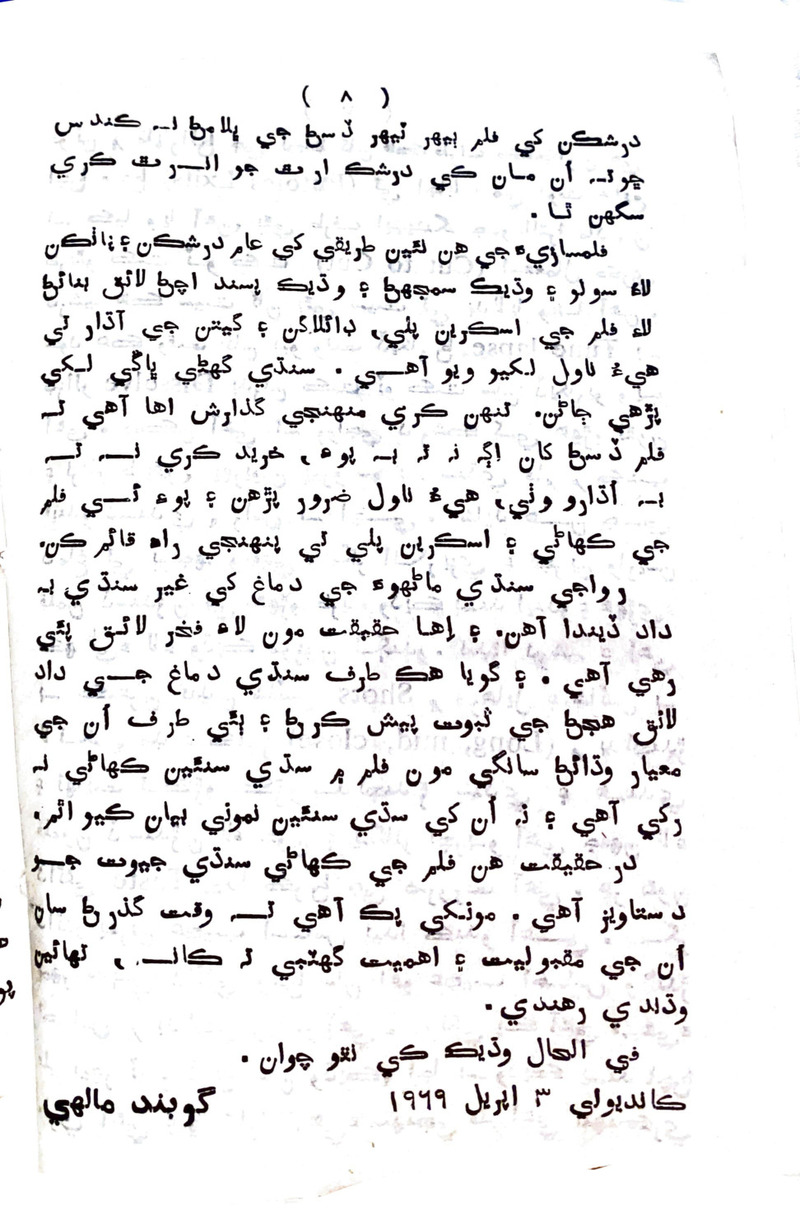 ( ٨ )
درشڪن کي فلم ٻيهر ٽيهر ڏسڻ جي پلامڻ نہ ڪندس
ڇو تہ اُن مان ڪي درشڪ ارٿ جو انرٿ ڪري
سگهن ٿا.
فلمسازيءَ جي هن نئين طريقي کي عام درشڪن ۽ پاٺڪن
لاءِ سولو ۽ وڌيڪ سمجهڻ ۽ وڌيڪ پسند اچڻ لائق بنائڻ
لاءِ فلم جي اسڪرين پلي، ڊائلاگن ۽ گيتن جي آڌار تي
هيءُ ناول لکيو ويو آهي. سنڌي گهڻي ڀاڱي لکي
پڙهي ڄاڻن. تنهن ڪري منهنجي گذارش اها آهي تہ
فلم ڏسڻ کان اڳ نہ تہ بہ پوءِ، خريد ڪري نہ تہ
بہ اُڌارو وٺي، هيءُ ناول ضرور پڙهن ۽ پوءِ ئي فلم
جي ڪهاڻي ۽ اسڪرين پلي تي پنهنجي راءِ قائم ڪن.
رواجي سنڌي ماڻهوءَ جي دماغ کي غير سنڌي بہ
داد ڏيندا آهن. ۽ اِها حقيقت مون لاءِ فخر لائق پئي
رهي آهي. ۽ گويا هڪ طرف سنڌي دماغ جي داد
لائق هجڻ جي ثبوت پيش ڪرڻ ۽ ٻئي طرف اُن جي
معيار وڌائڻ سانگي مون فلم ۾ سڌي سنئين ڪهاڻي نہ
رکي آهي ۽ نہ اُن کي سڌي سنئين نموني بيان ڪيو اٿم.
در حقيقت هن فلم جي ڪهاڻي سنڌي جيوت جو
دستاويز آهي. مونکي پڪ آهي تہ وقت گذرڻ سان
اُن جي مقبوليت ۽ اهميت گهٽبي تہ ڪانہ، تهائين
وڌندي رهندي.
في الحال وڌيڪ ڪي نٿو چوان.
ڪانديولي ٣ اپريل ١٩٦٩ گوبند مالهي